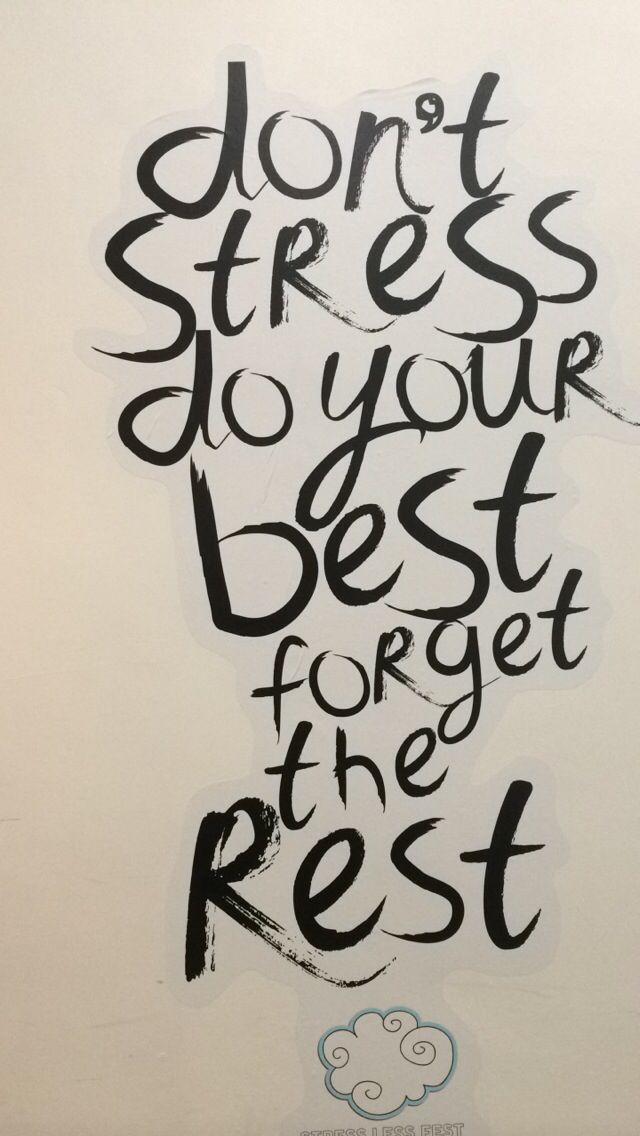 don't
stRess
do youR
best
foRget
the
Rest
STRESS LESS FEST